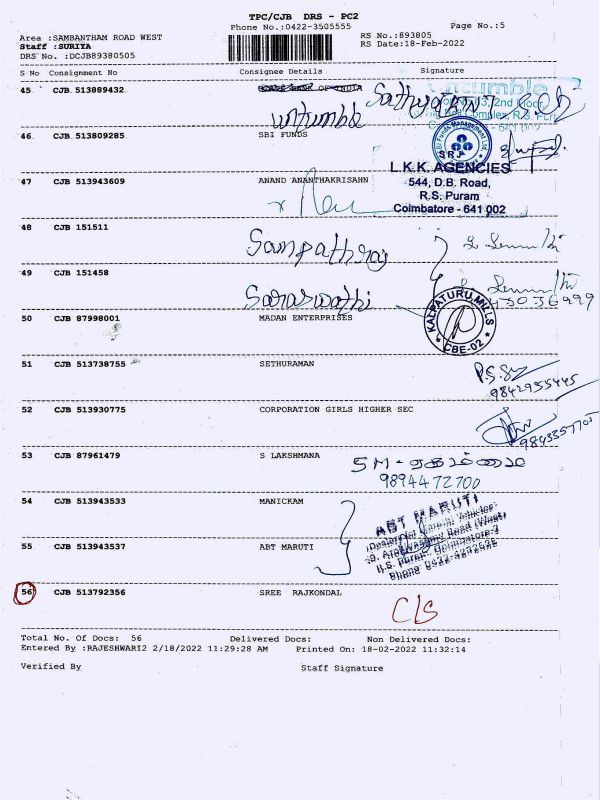 TPC/CJB DRS - PC2
Phone No.:0422-3505555
Page No.:5
Area :SAMBANTHAM ROAD WEST
RS No.:893805
Staff :SURIYA
RS Date:18-Feb-2022
DRS No. :DCJB89380505
S No Consignment No Consignee Details Signature
45 CJB 513889432 OF INDIA
untumble
2nd Floor,
46 CJB 513809285 SBI FUNDS
SRJ
L.K.K. AGENCIES
47 CJB 513943609 ANAND ANANTHAKRISAHN
544, D.B. Road,
R.S. Puram
Coimbatore - 641 002
48 CJB 151511
Sampathraj
49 CJB 151458
Saraswathi
50 CJB 87998001 MADAN ENTERPRISES
KALPATURU MILLS
CBE-02
51 CJB 513738755 SETHURAMAN
9842955445
52 CJB 513930775 CORPORATION GIRLS HIGHER SEC
53 CJB 87961479 S LAKSHMANA
9894472700
54 CJB 513943533 MANICKAM
ABT MARUTI
55 CJB 513943537 ABT MARUTI
56 CJB 513792356 SREE RAJKONDAL
C/S
Total No. Of Docs: 56 Delivered Docs: Non Delivered Docs:
Entered By :RAJESHWARI2 2/18/2022 11:29:28 AM Printed On: 18-02-2022 11:32:14
Verified By Staff Signature